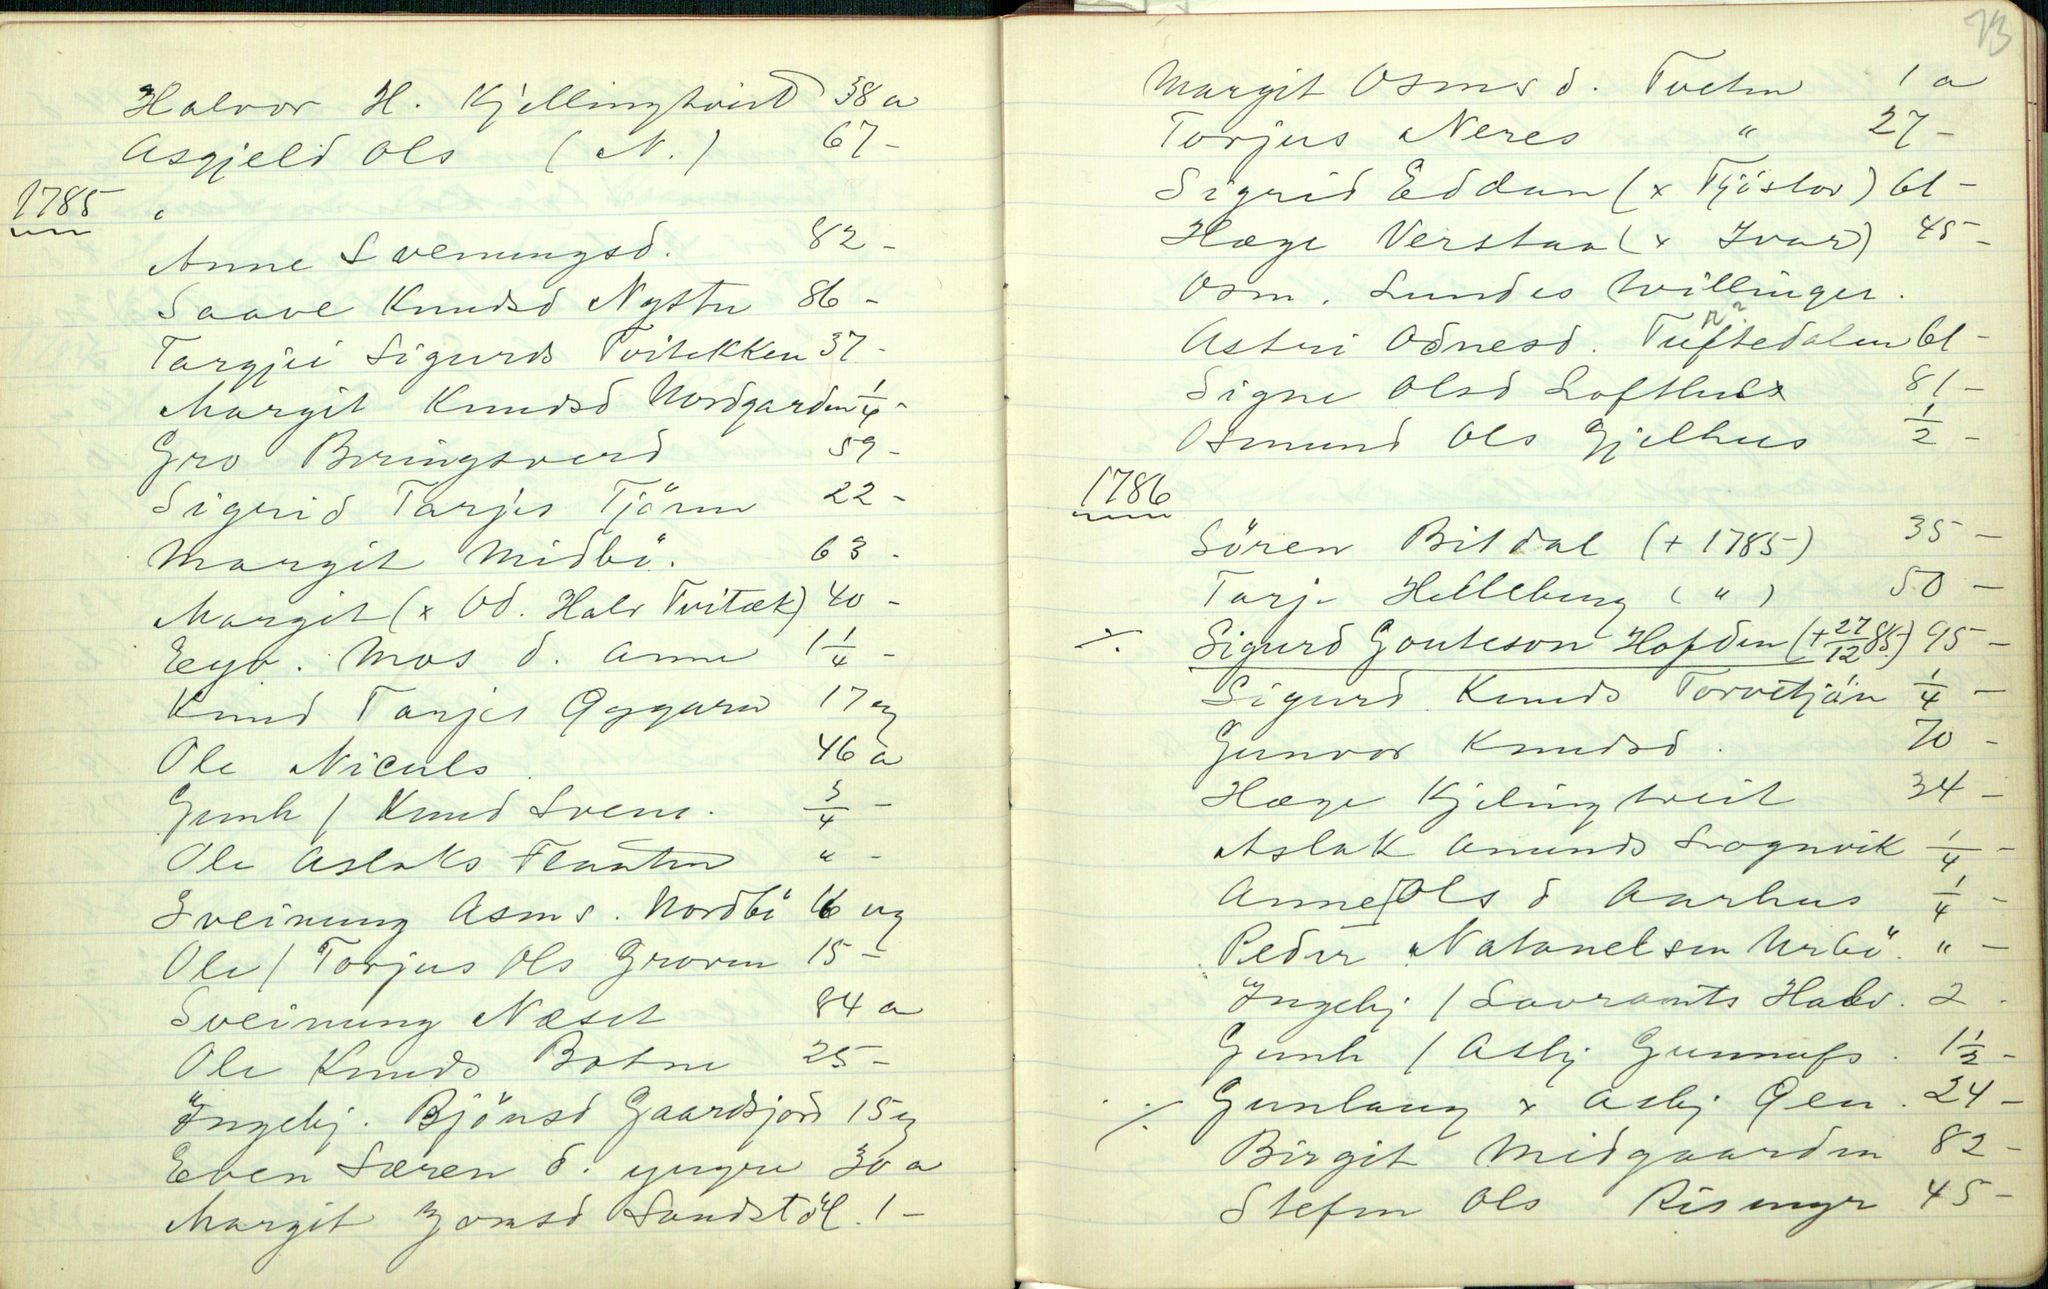 Halvor H. Kjellingtveit 38 a
Asgjeld Ols (N.) 67 -
1785
Anne Sveinungsd. 82 -
Saave Knudsd Nystu 86 -
Targjei Sigurds Tvitekken 37 -
Margit Knudsd Nordgarden 1/4 -
Gro Bringsverd 59 -
Sigrid Tarjes Tjönn 22 -
Margit Midbö. 63 -
Margit (x Od. Halv Tvitæk) 40 -
Eyv. Mos d. Anne 1 1/4 -
Knud Tarjes 17 ug
Ole Niculs 46 a
Gunh / Knud Svens. 3/4 -
Ole Aslaks Flaatin " -
Sveinung Asms. Nordbö 16 ug
Ole / Torjus Ols Groven 15 -
Sveinung Næset 84 a
Ole Knuds Botne 25 -
Ingebj. Bjönsd Gaardsjord 15 ug
Even Særen d. yngre 30 a
Margit Jonsd Sandstöl. 1 -
73
Margit Osms d. Tveten 1 a
Torjus Neres " 27 -
Sigrid Eddan (x Tjöstov) 61 -
Hæge Verstaa (x Ivar) 45 -
Osm. Sundes tvillinger.
Astri Odnesd. Tuftedalen 61 -
Signe Olsd Lofthus 81 -
Osmund Ols Gjelhus 1/2 -
1786
Sören Bitdal (+ 1785) 35 -
Tarje Helleberg ( " ) 50 -
./. Sigurd Gouteson Hofden (+ 27/12 85) 95 -
Sigurd Knuds Torvetjön 1/4 -
Gunvor Knudsd. 70 -
Hæge Kjelingtveit 34 -
Aslak Amunds Svognvik 1/4 -
Anne / Ols d Aarhus 1/4 -
Peder Natanelsen Urbö. " -
Ingebj / Lavrants Halv. 2 -
Gunh / Asbj Gunnufs. 1 1/2 -
./. Gunlaug x Asbj Gen. 24 -
Birgit Midgaarden 82 -
Stefen Ols Risingr 45 -